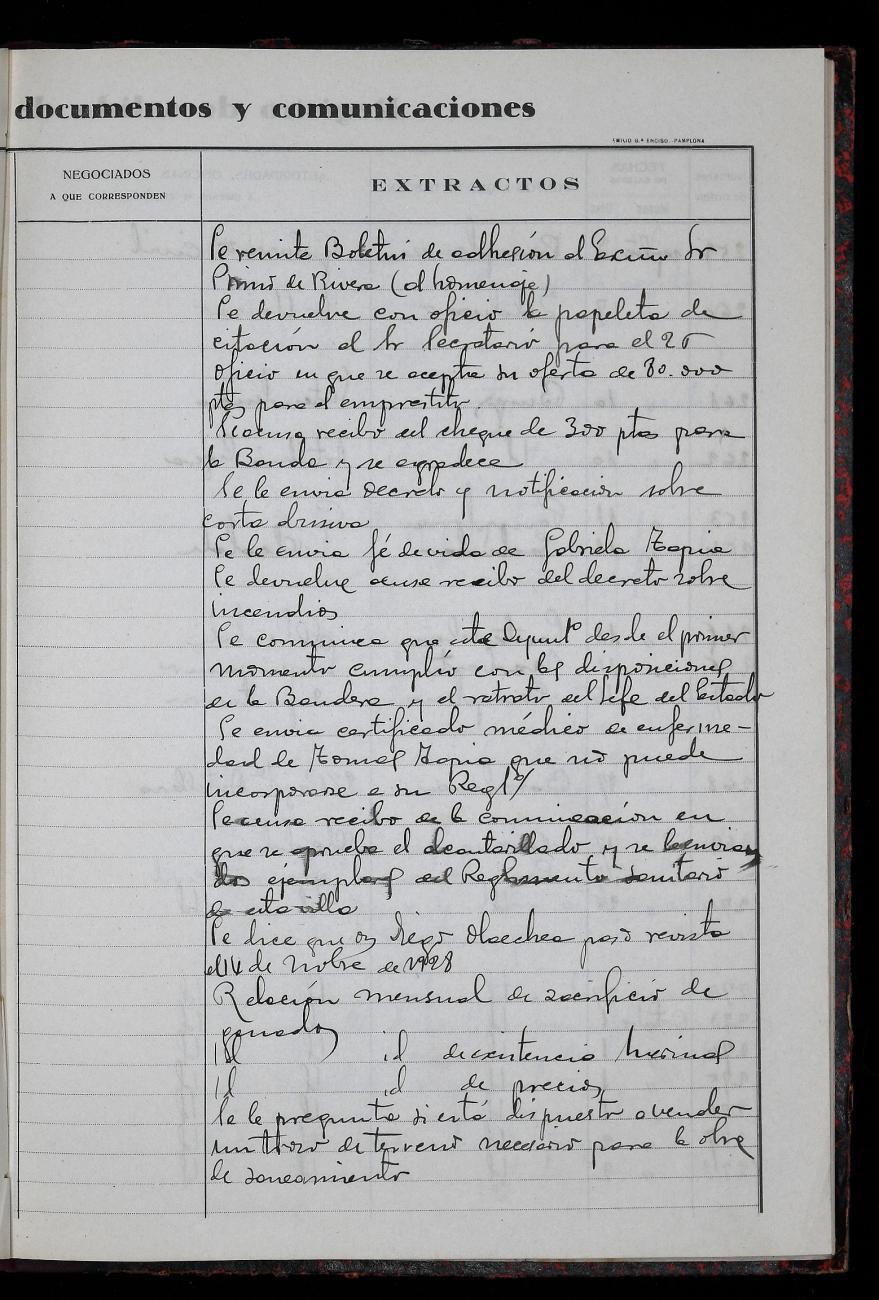 documentos y comunicaciones
EMILIO G.ª ENCISO.-PAMPLONA
NEGOCIADOS
A QUE CORRESPONDEN
EXTRACTOS
Se remite Boletin de adhesión al Excmo Sr
Primo de Rivera (al homenaje)
Se devuelve con oficio la papeleta de
citación al Sr Secretario para el 25
Oficio en que se acepta su oferta de 30.000
ptas para el emprestito
Se acusa recibo del cheque de 300 ptas para
la Banda y se agradece
Se le envia decreto y notificacion sobre
corta
Se le envia fé de vida de Gabriela Tapia
Se devuelve acuse recibo del decreto sobre
incendios
Se comunica que este Ayuntº desde el primer
momento cumplió con las disposiciones
de la Bandera y el retrato del Jefe del Estado
Se envia certificado médico de enferme-
dad de Tomas Tapia que no puede
incorporarse a su Reglº/
Se acusa recibo de la comunicación en
que se aprueba el alcantarillado y se le envian
dos ejemplares del Reglamento sanitario
de esta villa
Se dice que Diego Olaechea pasó revista
el 14 de Nobre de 1928
Relación mensual de sacrificio de
ganados
Id id de existencia
Id id de precios
Se le pregunta si está dispuesto a vender
un trozo de terreno necesario para la obra
de saneamiento